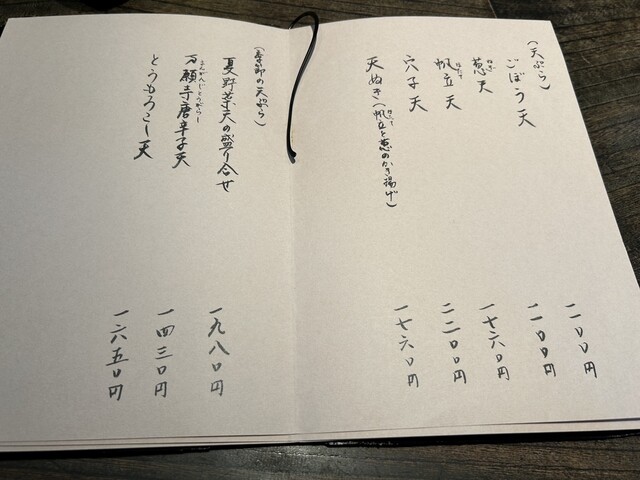 (天ぷら)
ごぼう天 一一〇〇円
ねぎ
葱天 一一〇〇円
ほたて
帆立天 一七六〇円
穴子天 二二〇〇円
ほたて
天ぬき(帆立と葱のかき揚げ) 一七六〇円
(季節の天ぷら)
夏野菜天の盛り合せ 一九八〇円
まんがんじとうがらし
万願寺唐辛子天 一四三〇円
とうもろこし天 一六五〇円